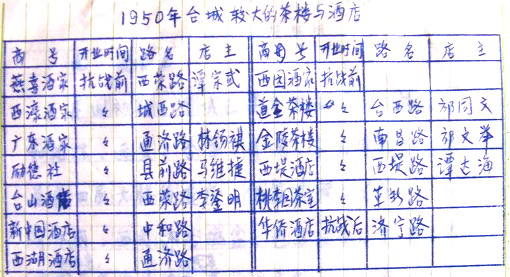 1950年台城较大的茶楼与酒店
商号 开业时间 路名 店主 商号 开业时间 路名 店主
燕喜酒家 抗战前 西荣路 谭宗武 西园酒店 抗战前
西濠酒家 〃 城西路 道金茶楼 〃 台西路 邝同文
广东酒家 〃 通济路 林锡祺 金陵茶楼 〃 南昌路 邝文举
励德社 〃 县前路 马维捷 西堤酒店 〃 西堤路 谭达海
台山酒店 〃 西荣路 李鎏明 桃李园茶室 〃 革新路
新中国酒店 〃 中和路 华侨酒店 抗战后 济宁路
西湖酒店 〃 通济路